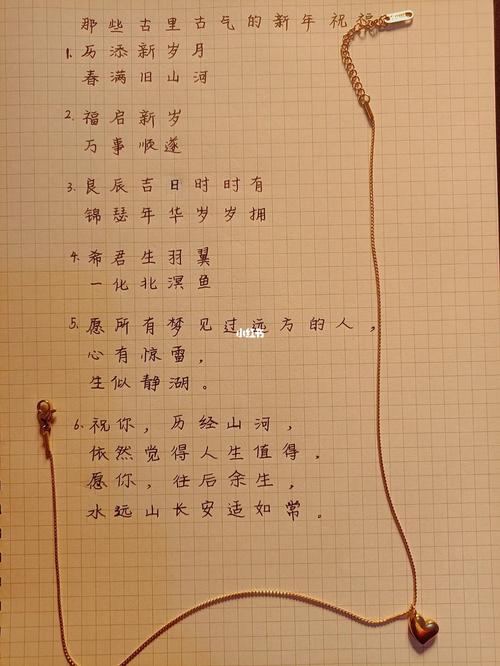 那些古里古气的新年祝福
1. 历添新岁月
春满旧山河
2. 福启新岁
万事顺遂
3. 良辰吉日时时有
锦瑟年华岁岁拥
4. 希君生羽翼
一化北溟鱼
5. 愿所有梦见过远方的人，
小红书
心有惊雷，
生似静湖。
6. 祝你，历经山河，
依然觉得人生值得，
愿你，往后余生，
水远山长安适如常。